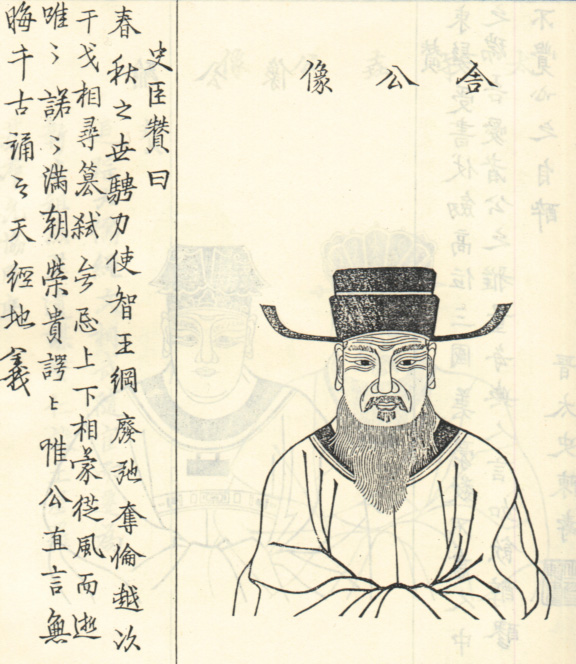 舍公像
史臣贊曰
春秋之世騁力使智王綱廢弛奪倫越次
干戈相尋篡弒无忌上下相蒙從風而逝
唯〻諾〻滿朝榮貴諤〻惟公直言無
晦千古誦之天經地義